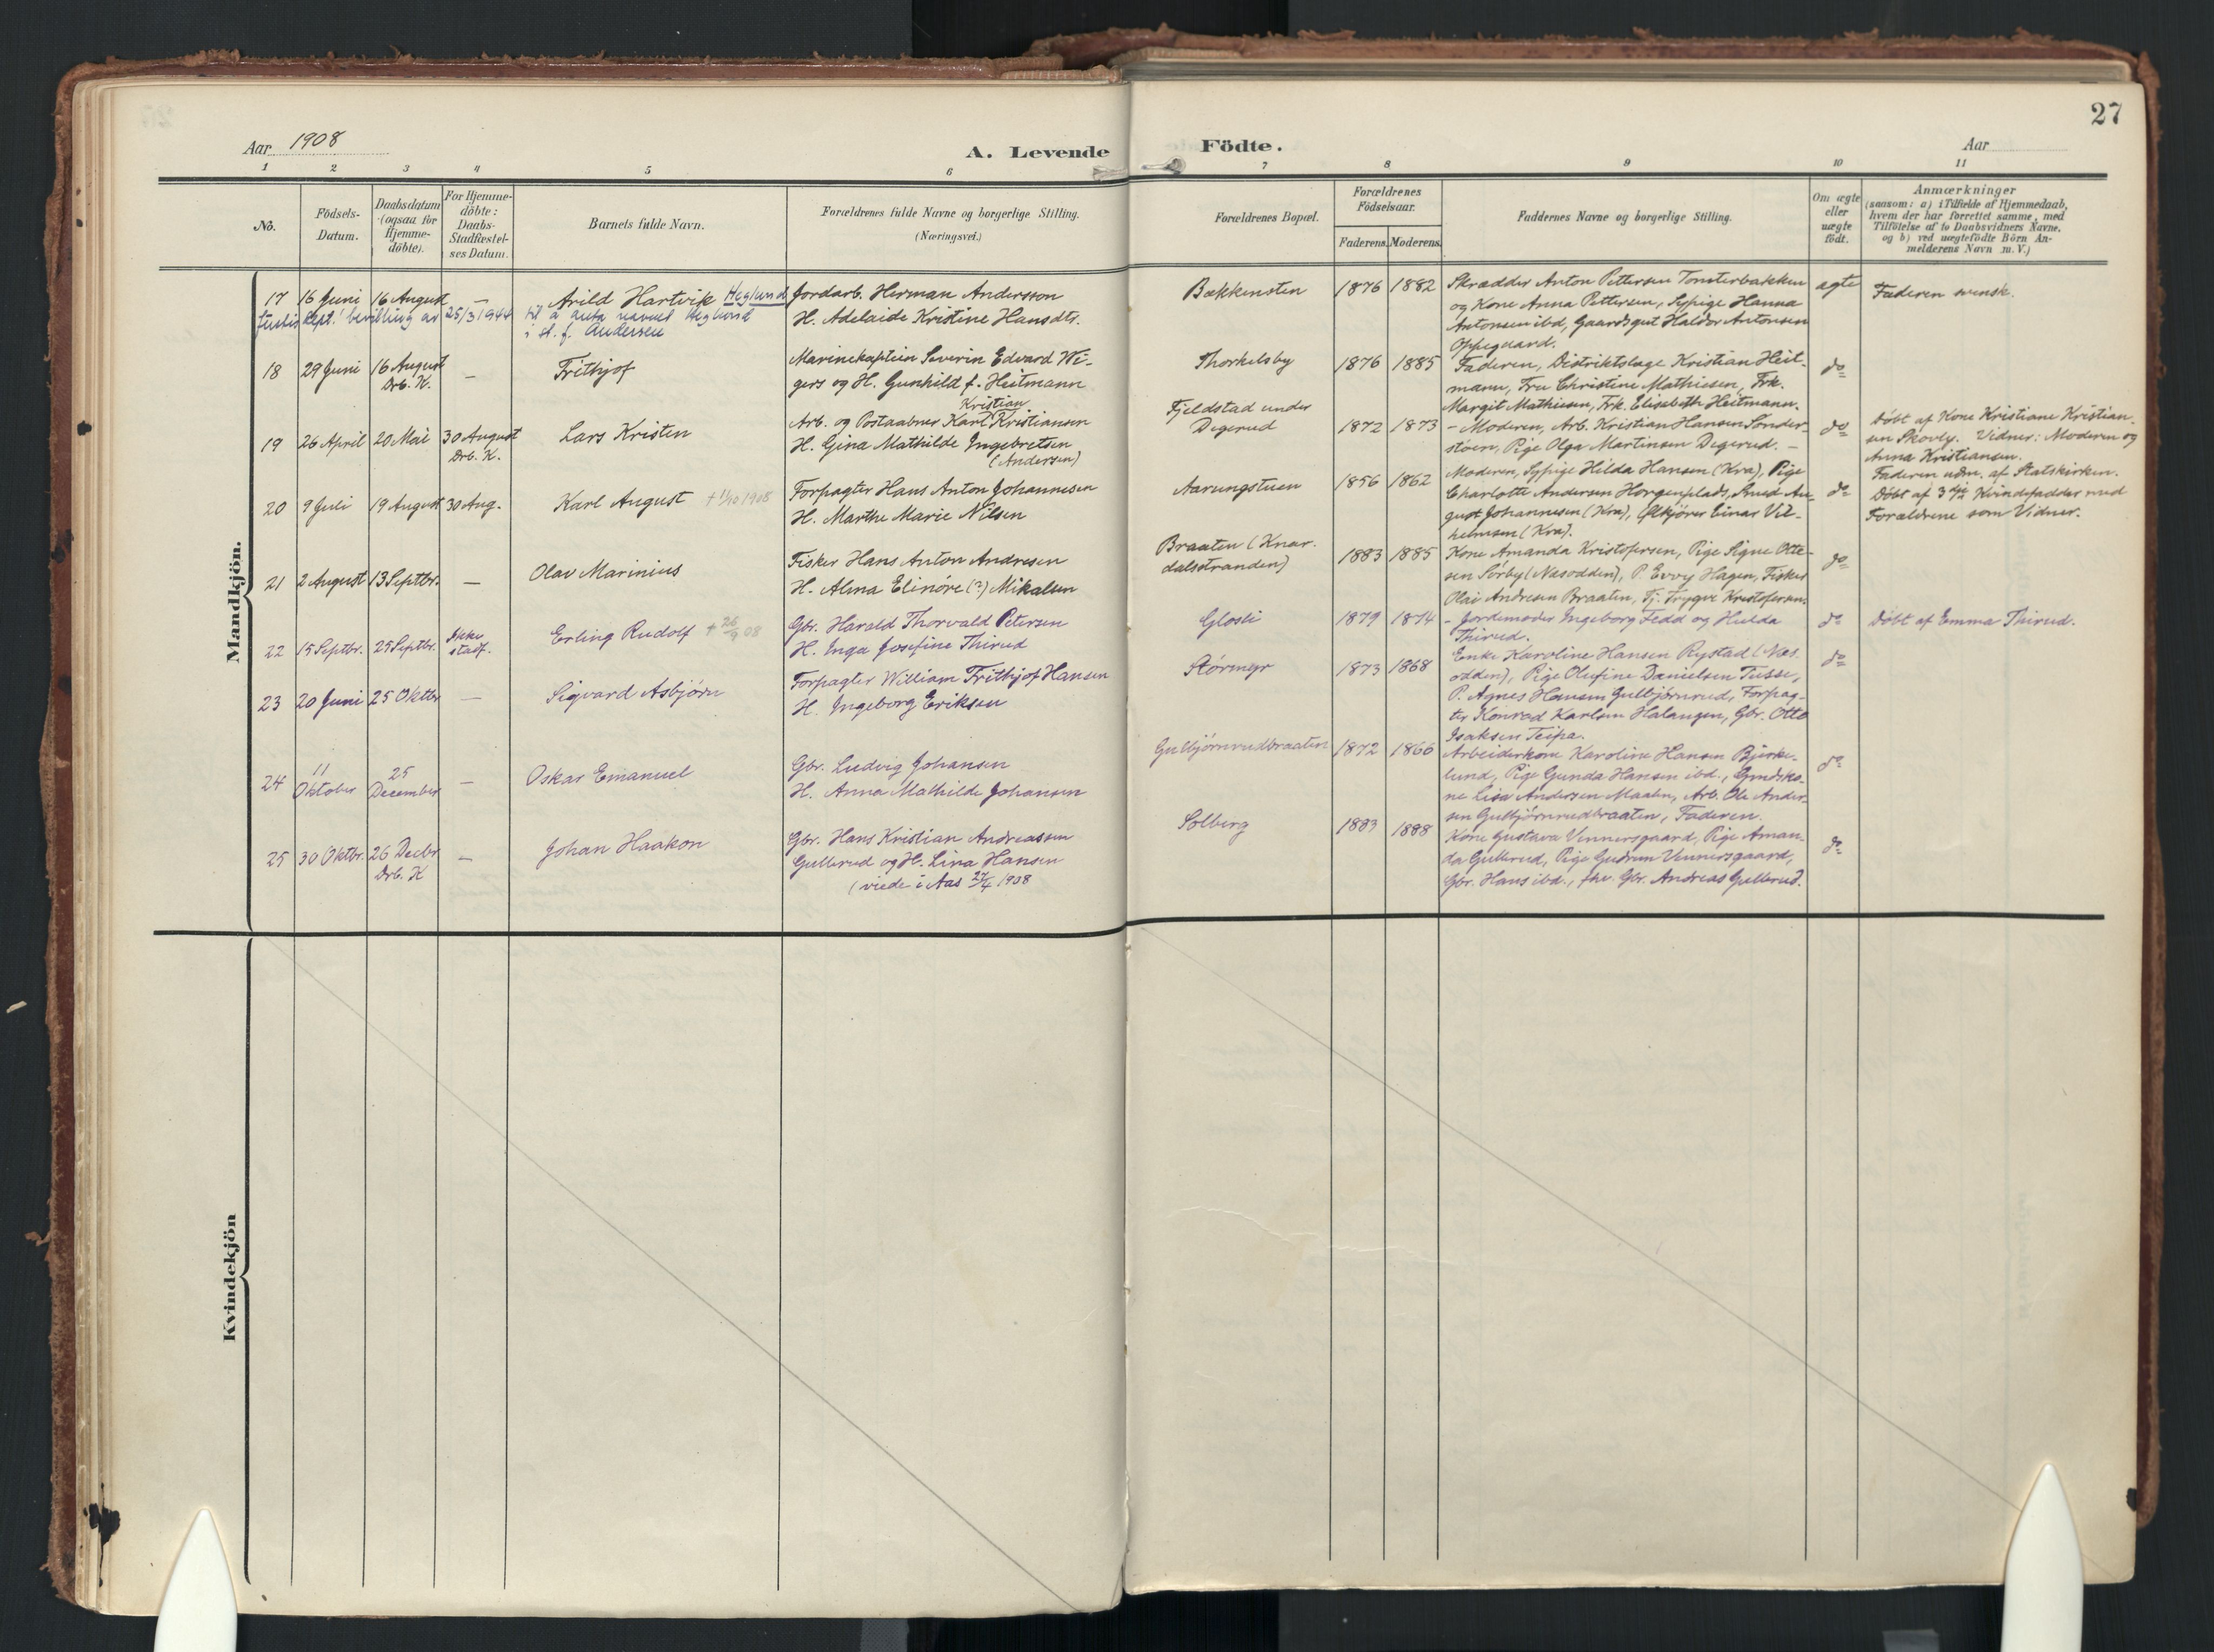 27
Aar 1908
A. Levende Födte.
Aar
1 2 3 4 5 6 7 8 9 10 11
No.
Födsels-
Datum.
Daabsdatum
(ogsaa for
Hjemme-
döbte).
For Hjemme-
döbte:
Daabs-
Stadfæstel-
ses Datum.
Barnets fulde Navn.
Forældrenes fulde Navne og borgerlige Stilling.
(Næringsvei.)
Forældrenes Bopæl.
Forældrenes
Födselsaar.
Faderens. Moderens.
Faddernes Navne og borgerlige Stilling.
Om ægte
eller
uægte
födt.
Anmærkninger
(saasom: a) i Tilfælde af Hjemmedaab,
hvem der har forrettet samme, med
Tilföielse af to Daabsvidners Navne,
og b) ved uægtefödte Börn An-
melderens Navn m. V.)
Mandkjön.
17 16 Juni 16 August —
Arild Hartvik Heglund
bevilling av 25/3 1944 til å anta navnet Heglund
i st. f. Andersen
Jordarb. Herman Andersson
H. Adelaide Kristine Hansdtr.
Bækkensten
1876 1882
Skrædder Anton Pettersen Tonsterbakken
og Kone Anna Pettersen, Sypige Hanna
Antonsen ibd, Gaardsgut Haldor Antonsen
Oppegaard.
ægte
Faderen svensk.
18 29 Juni 16 August
Drb. K.
—
Frithjof
Marinekaptein Severin Edvard Wi-
gers og H. Gunhild f. Heitmann
Thorkelsby
1876 1885
Faderen, Distriktslæge Kristian Heit-
mann, Fru Christine Mathiesen, Frk.
Margit Mathiesen, Frk. Elisabeth Heitmann.
do
19 26 April 20 Mai 30 August
Drb. K.
Lars Kristen
Kristian
Arb. og Postaabner Karl Kristiansen
H. Gina Mathilde Ingebretsen
(Andersen)
Fjeldstad under
Degerud
1872 1873
- Moderen, Arb. Kristian Hansen Sønder-
støen, Pige Olga Martinsen Degerud. -
do
Döbt af Kone Kristiane Kristian-
sen Skovly. Vidner: Moderen og
Anna Kristiansen.
Faderen udm. af Statskirken.
20 9 Juli 19 August 30 Aug.
Karl August + 1/10 1908
Forpagter Hans Anton Johannesen
H. Marthe Marie Nilsen
Aarungstuen
1856 1862
Moderen, Sypige Hilda Hansen (Kra), Pige
Charlotte Andersen Horgenplads, Smed Au-
gust Johannesen (Kra), Ølkjører Einar Vil-
helmsen (Kra).
do
Döbt af 3dje Kvindefadder med
Forældrene som Vidner.
21 2 August 13 Septbr. —
Olav Marinius
Fisker Hans Anton Andresen
H. Alma Elinöre (?) Mikalsen
Braaten (Knar-
dalsstranden)
1883 1885
Kone Amanda Kristofersen, Pige Signe Otte-
sen Sørby (Næsodden), P. Evvy Hagen, Fisker
Olai Andresen Braaten, Tj. Trygve Kristofersen.
do
22 15 Septbr. 25 Septbr. Ikke
stadf.
Erling Rudolf + 26/9 08
Gbr. Harald Thorvald Petersen
H. Inga Josefine Thirud
Glosli
1879 1874
- Jordemoder Ingeborg Fedd og Hulda
Thirud.
do
Döbt af Emma Thirud.
23 20 Juni 25 Oktbr —
Sigvard Asbjørn
Forpagter William Frithjof Hansen
H. Ingeborg Eriksen
Størmyr
1873 1868
Enke Karoline Hansen Rystad (Næs-
odden), Pige Olufine Danielsen Tusse,
P. Agnes Hansen Gulbjørnrud, Forpag-
ter Konrad Karlsen Halangen, Gbr. Otto
Isaksen Teipa.
do
24 11
Oktober
25
December
—
Oskar Emanuel
Gbr. Ludvig Johansen
H. Anna Mathilde Johansen
Gulbjørnrudbraaten
1872 1866
Arbeiderkone Karoline Hansen Bjerke-
lund, Pige Gunda Hansen ibd., Grndsko-
ne Lisa Andersen Maaltn, Arb. Ole Ander-
sen Gulbjørnrudbraaten, Faderen.
do
25 30 Oktbr. 26 Decbr
Drb. K
—
Johan Haakon
Gbr. Hans Kristian Andreassen
Gullerud og H. Lina Hansen
(viede i Aas 27/4 1908
Solberg
1883 1888
Kone Gustava Vennersgaard, Pige Aman-
da Gullerud, Pige Gudrun Vennersgaard,
Gbr. Hans ibd., fhv. Gbr. Andreas Gullerud.
do
Kvindekjön